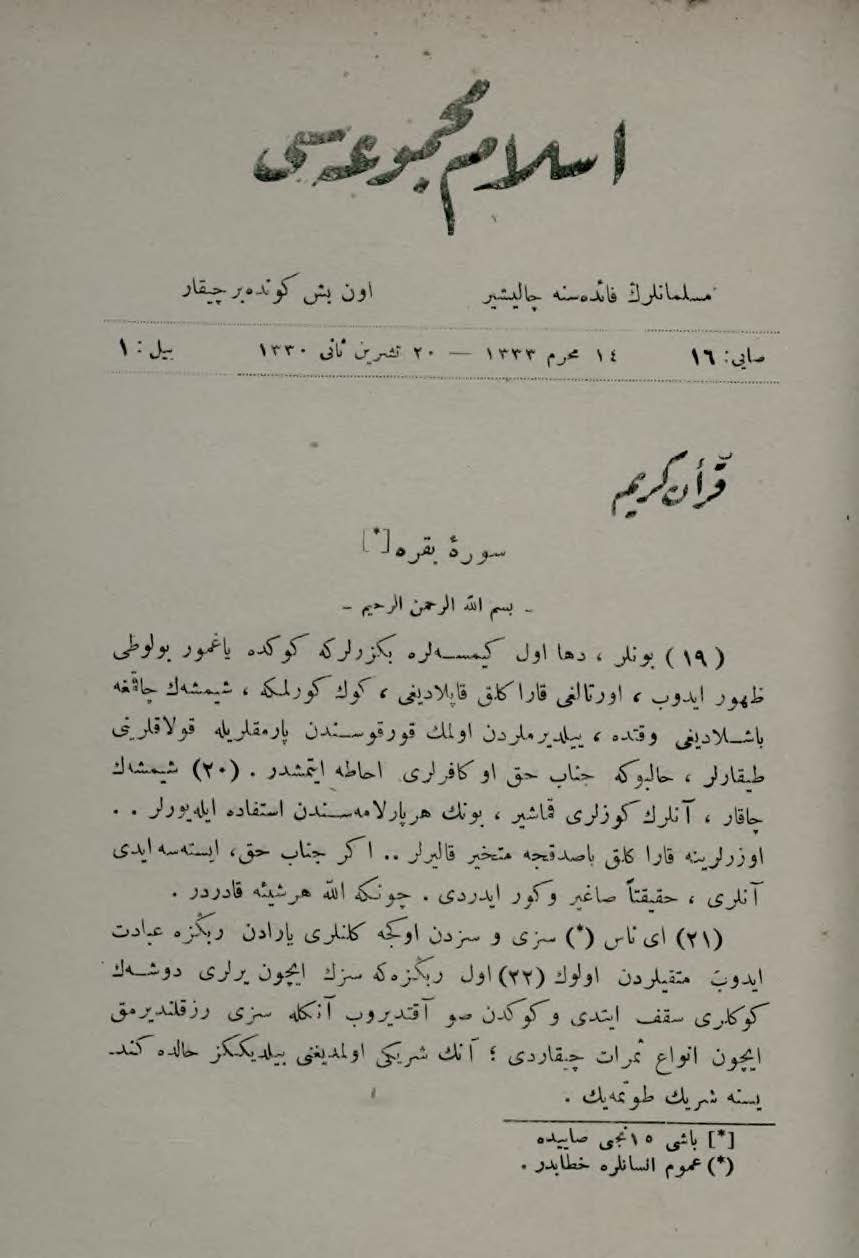 اسلام مجموعه‌سی
مسلمانلرڭ فائده‌سنه چالیشیر اون بش كونده‌بر چیقار
صایی: ١٦ ١٤ محرم ١٣٣٣ — ٢٠ تشرین ثانی ١٣٣٠ ییل: ١
قرأن كریم
سورۀ بقره [*]
- بسم الله الرحمن الرحیم -
(١٩) بونلر ، دها اول كیمسه‌لره بكزرلركه كوكده یاغمور بولوطی
ظهور ایدوب ، اورتالغی قاراكلق قاپلادیغی ، كوك كورلمكه ، شیمشه‌ك چاقمغه
باشلادیغی وقتده ، ییلدیرملردن اولمك قورقوسندن پارمقلریله قولاقلرینی
طیقارلر ، حالبوكه جناب حق او كافرلری احاطه ایتمشدر . (٢٠) شیمشه‌ك
چاقار ، آنلرك كوزلری قماشیر ، بونك هرپارلامه‌سندن استفاده ایله‌یورلر . .
اوزرلرینه قاراكلق باصدقجه متحیر قالیرلر .. اكر جناب حق، ایسته‌سه ایدی
آنلری ، حقیقتاً صاغیر وكور ایدردی . چونكه الله هرشیئه قادردر .
(٢١) ای ناس (*) سزی و سزدن اوكجه كلنلری یارادن ربڭزه عبادت
ایدوب متقیلردن اولوك (٢٢) اول ربڭزه‌كه سزك ایچون یرلری دوشه‌ك
كوكلری سقف ایتدی وكوكدن صو آقتدیروب آنكله سزی رزقلندیرمق
ایچون انواع ثمرات چیقاردی ؛ آنك شریكی اولمدیغنی بیلدیككز حالده كند-
یسنه شریك طوتمه‌یك .
[*] باشی ١٥نجی صاییده
(*) عموم انسانلره خطابدر .